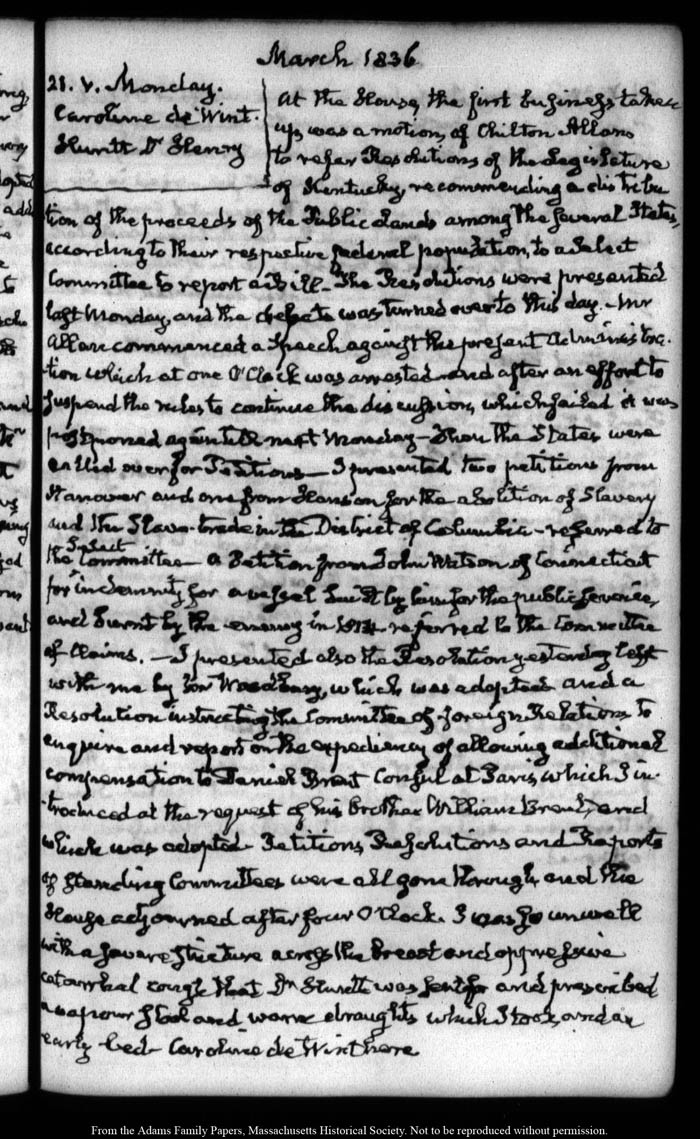 March 1836
21. V. Monday.
Caroline de Wint.
Huntt Dr Henry
At the House, the first business taken
up, was a motion of Chilton Allan
to refer Resolutions of the Legislature
of Kentucky, recommending a distribu
tion of the proceeds of the Public Lands among the several States,
according to their respective federal population, to a Select
Committee to report a bill. The Resolutions were presented
last Monday, and the debate was turned over to this day. Mr
Allan commenced a Speech against the present Administra-
tion which at one O'Clock was arrested and after an effort to
suspend the rules to continue the discussion, which failed it was
postponed again till next Monday— Then the States were
called over for Petitions— I presented two petitions from
Hanover and one from Hanson for the abolition of Slavery
and the Slave-trade in the District of Columbia—referred to
the Select Committee— a Petition from John Watson of Connecticut
for indemnity for a vessel built by him for the public service,
and burnt by the enemy in 1814 referred to the Committee
of Claims.—I presented also the Resolution yesterday left
with me by Woodbury, which was adopted and a
Resolution instructing the Committee of foreign Relations to
enquire and report on the expediency of allowing additional
compensation to Daniel Brent Consul at Paris, which I in-
troduced at the request of his brother William Brent, and
which was adopted. Petitions, Resolutions and Reports
of Standing Committees were all gone through, and the
House adjourned after four O'Clock. I was so unwell
with a severe stricture across the breast and oppressive
catarrhal cough that Dr Huntt was sent for and prescribed
a vapour and warm draughts which I took and an
early bed— Caroline de Wint here
From the Adams Family Papers, Massachusetts Historical Society. Not to be reproduced without permission.